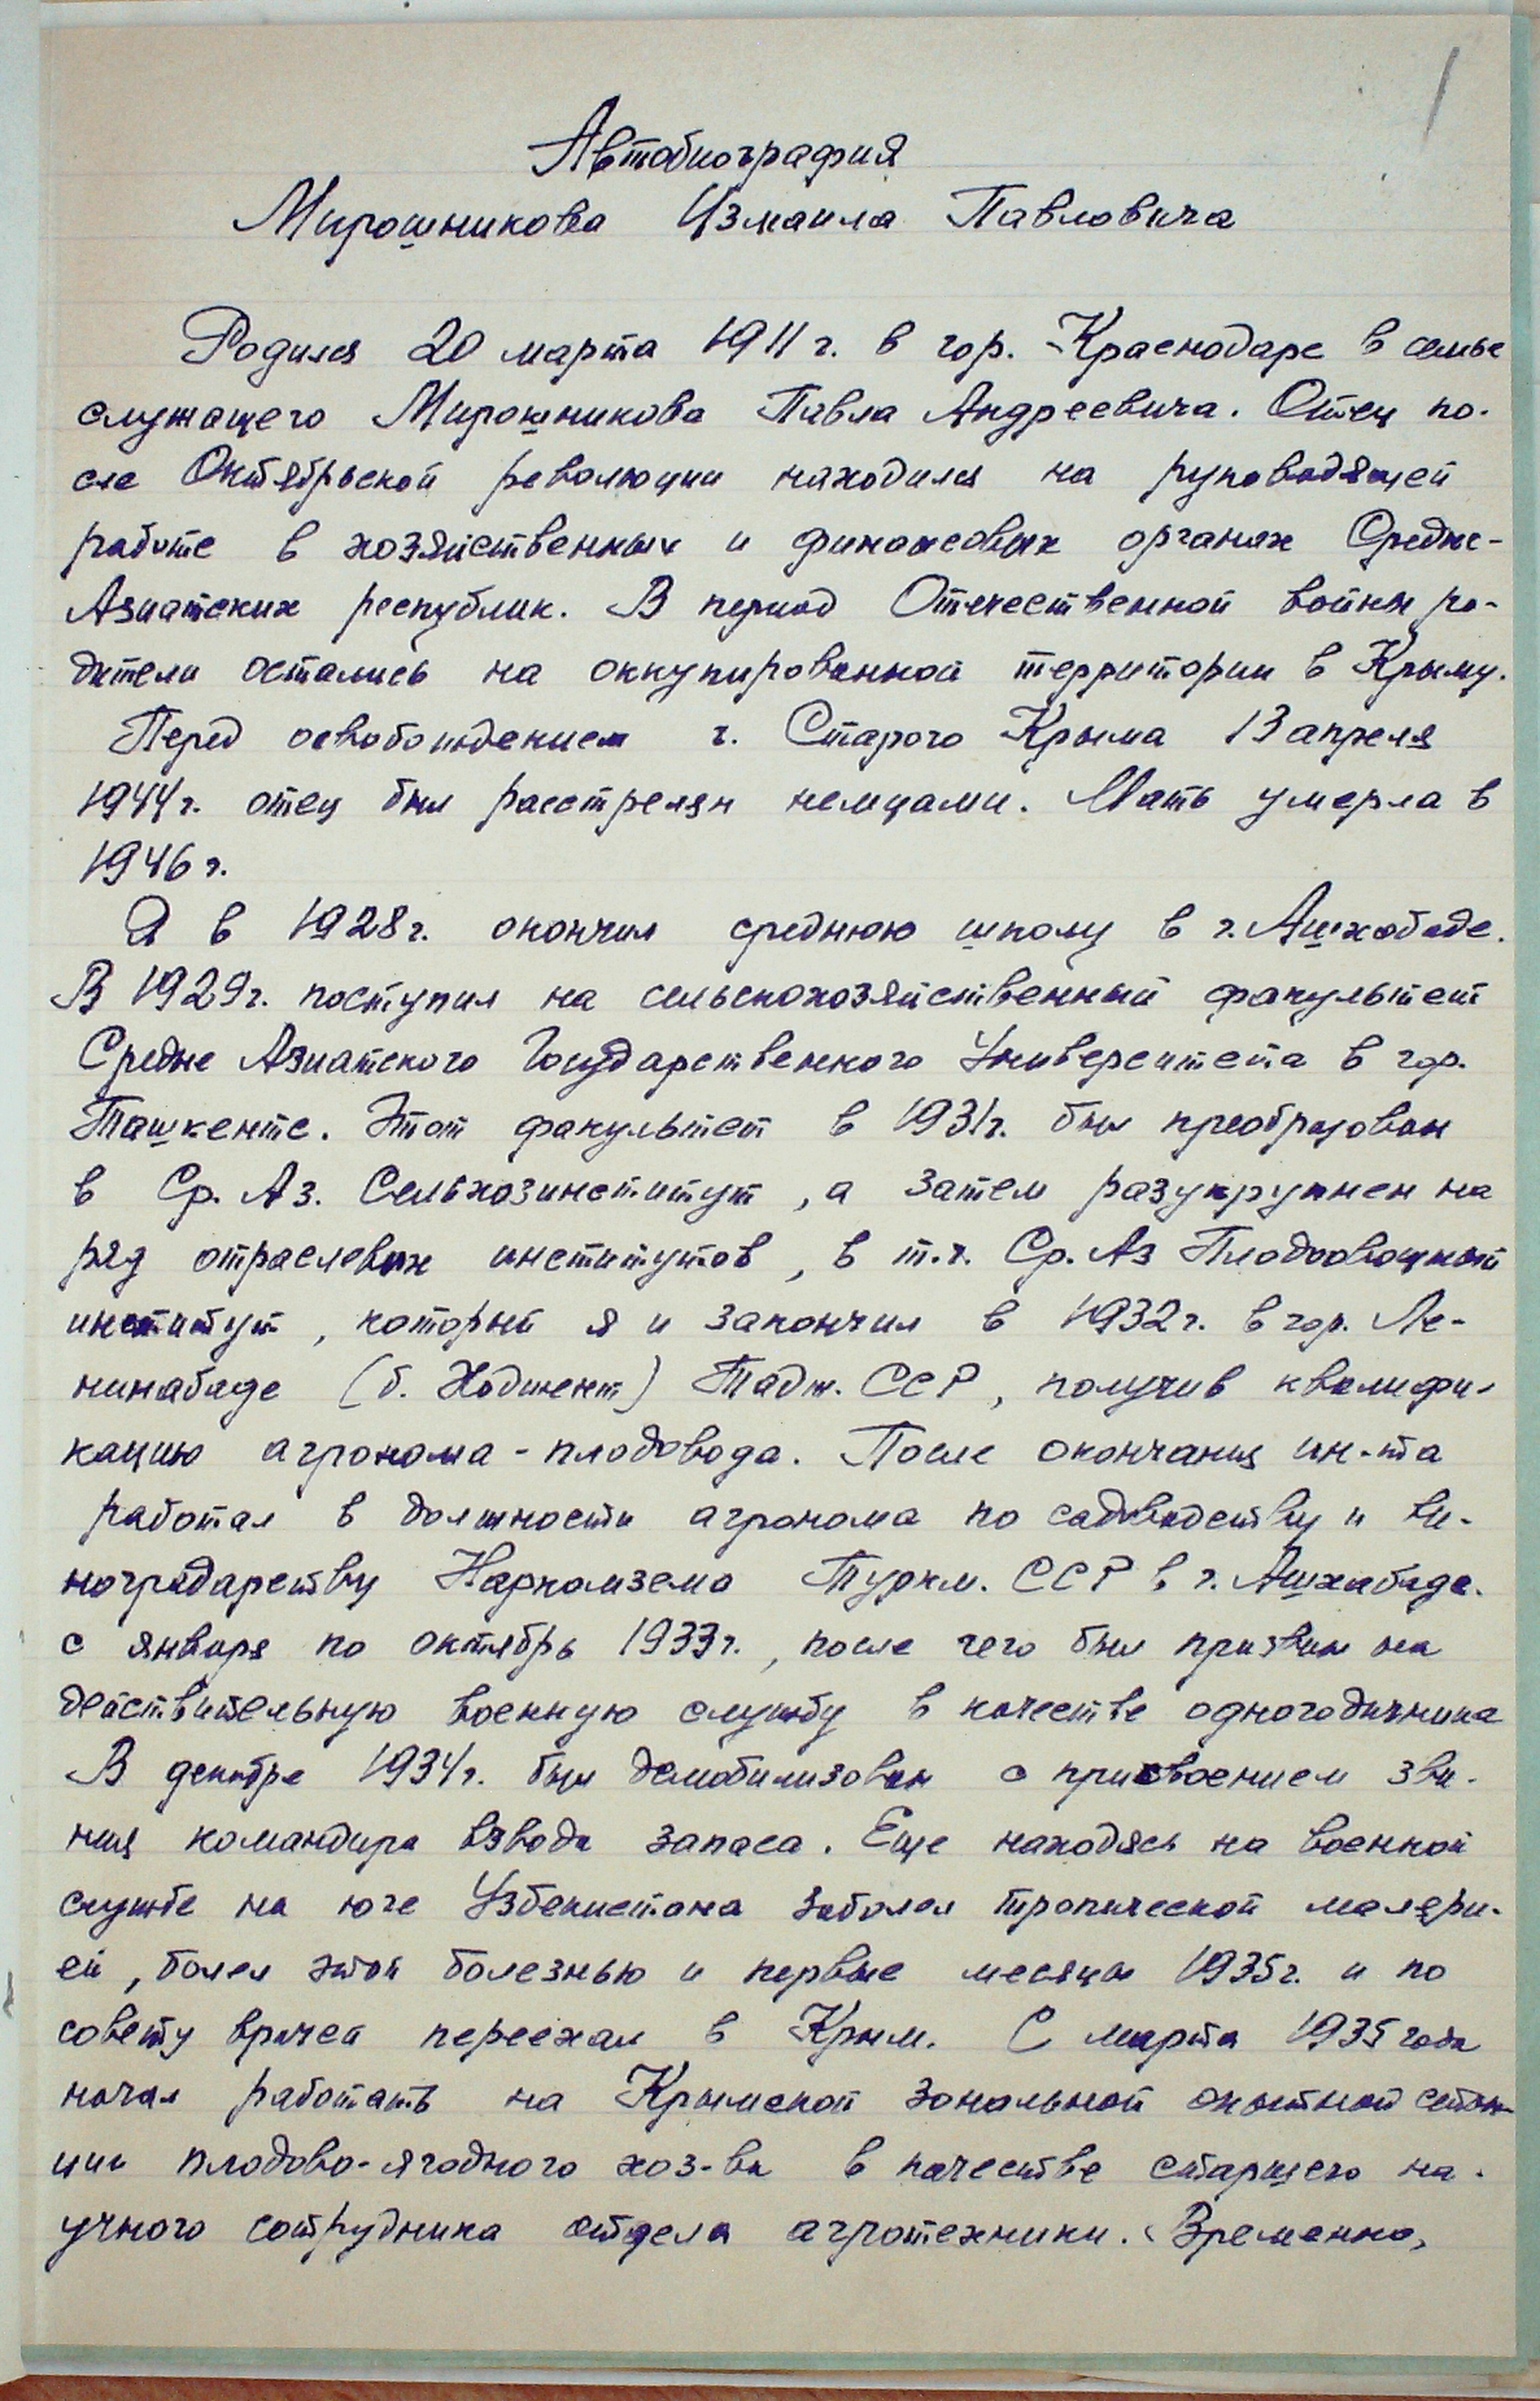 Автобиография
Мирошникова Измаила Павловича
Родился 20 марта 1911 г. в гор. Краснодаре в семье
служащего Мирошникова Павла Андреевича. Отец по-
сле Октябрьской революции находился на руководящей
работе в хозяйственных и финансовых органах Средне-
Азиатских республик. В период Отечественной войны ро-
дители остались на оккупированной территории в Крыму.
Перед освобождением г. Старого Крыма 13 апреля
1944 г. отец был расстрелян немцами. Мать умерла в
1946 г.
Я в 1928 г. окончил среднюю школу в г. Ашхабаде.
В 1929 г. поступил на сельскохозяйственный факультет
Средне Азиатского Государственного Университета в гор.
Ташкенте. Этот факультет в 1931 г. был преобразован
в Ср. Аз. Сельхозинститут, а затем разукрупнен на
ряд отраслевых институтов, в т.ч. Ср. Аз Плодоовощный
институт, который я и закончил в 1932 г. в гор. Ле-
нинабаде (б. Ходжент) Тадж. ССР, получив квалифи-
кацию агронома-плодовода. После окончания ин-та
работал в должности агронома по садоводству и ви-
ноградарству Наркомзема Туркм. ССР в г. Ашхабаде.
с января по октябрь 1933 г., после чего был призван на
действительную военную службу в качестве одногодичника
В декабре 1934 г. был демобилизован с присвоением зва-
ния командира взвода запаса. Еще находясь на военной
службе на юге Узбекистана заболел тропической маляри-
ей, болел этой болезнью и первые месяцы 1935 г. и по
совету врачей переехал в Крым. С марта 1935 года
начал работать на Крымской зональной опытной стан-
ции плодово-ягодного хоз-ва в качестве старшего на-
учного сотрудника отдела агротехники. Временно,